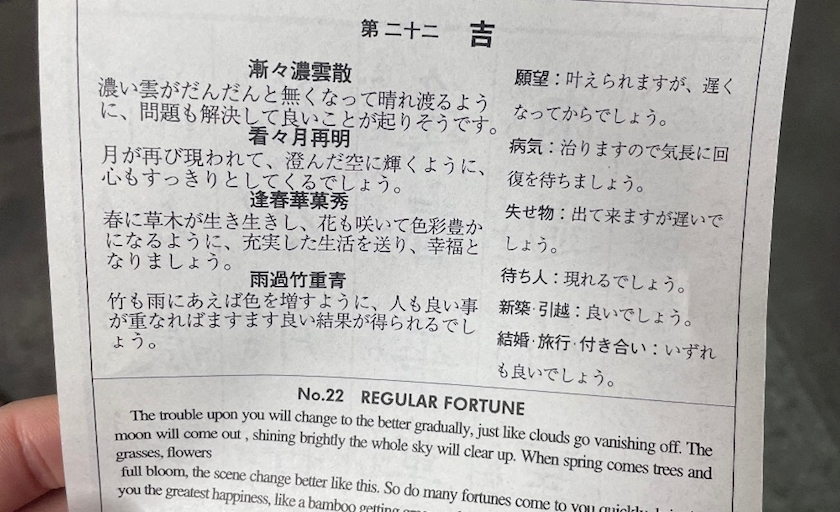 第二十二 吉
漸々濃雲散
濃い雲がだんだんと無くなって晴れ渡るよう
に、問題も解決して良いことが起りそうです。
看々月再明
月が再び現われて、澄んだ空に輝くように、
心もすっきりとしてくるでしょう。
逢春華菓秀
春に草木が生き生きし、花も咲いて色彩豊か
になるように、充実した生活を送り、幸福と
なりましょう。
雨過竹重青
竹も雨にあえば色を増すように、人も良い事
が重なればますます良い結果が得られるでし
ょう。
願望：叶えられますが、遅く
なってからでしょう。
病気：治りますので気長に回
復を待ちましょう。
失せ物：出て来ますが遅いで
しょう。
待ち人：現れるでしょう。
新築·引越：良いでしょう。
結婚·旅行·付き合い：いずれ
も良いでしょう。
No.22 REGULAR FORTUNE
The trouble upon you will change to the better gradually, just like clouds go vanishing off. The
moon will come out , shining brightly the whole sky will clear up. When spring comes trees and
grasses, flowers
full bloom, the scene change better like this. So do many fortunes come to you quickly
you the greatest happiness, like a bamboo getting